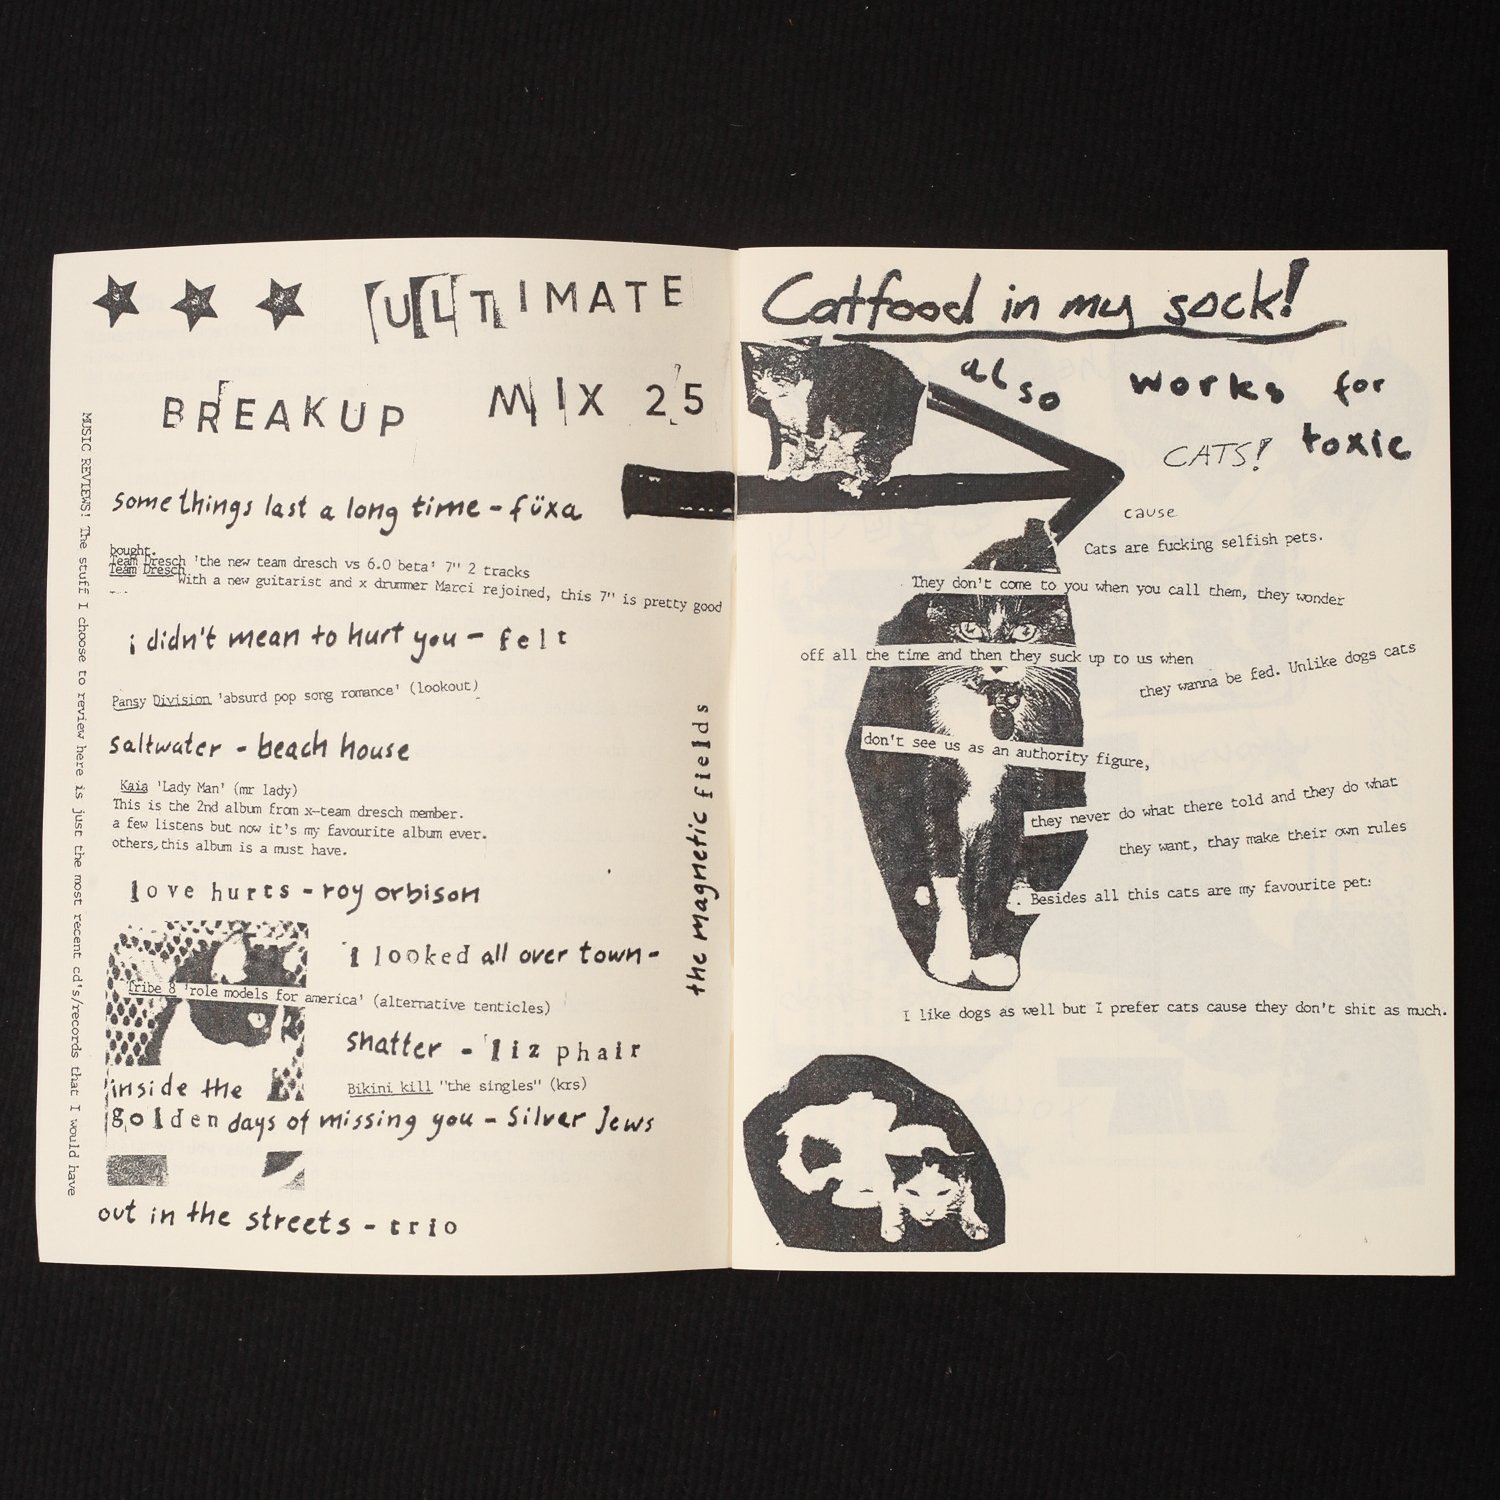 ULTIMATE
BREAKUP MIX 25
MUSIC REVIEWS! The stuff I choose to review here is just the most recent cd's/records that I would have
some things last a long time - füxa
bought.
Team Dresch 'the new team dresch vs 6.0 beta' 7" 2 tracks
Team Dresch
With a new guitarist and x drummer Marci rejoined, this 7" is pretty good
i didn't mean to hurt you - felt
Pansy Division 'absurd pop song romance' (lookout)
saltwater - beach house
Kaia 'Lady Man' (mr lady)
This is the 2nd album from x-team dresch member.
a few listens but now it's my favourite album ever.
others, this album is a must have.
love hurts - roy orbison
i looked all over town -
the magnetic fields
Tribe 8 'role models for america' (alternative tenticles)
shatter - liz phair
Bikini kill "the singles" (krs)
inside the
golden days of missing you - Silver Jews
out in the streets - trio
Catfood in my sock!
also works for
toxic
CATS!
cause
Cats are fucking selfish pets.
They don't come to you when you call them, they wonder
off all the time and then they suck up to us when
they wanna be fed. Unlike dogs cats
don't see us as an authority figure,
they never do what there told and they do what
they want, thay make their own rules
.. Besides all this cats are my favourite pet:
I like dogs as well but I prefer cats cause they don't shit as much.